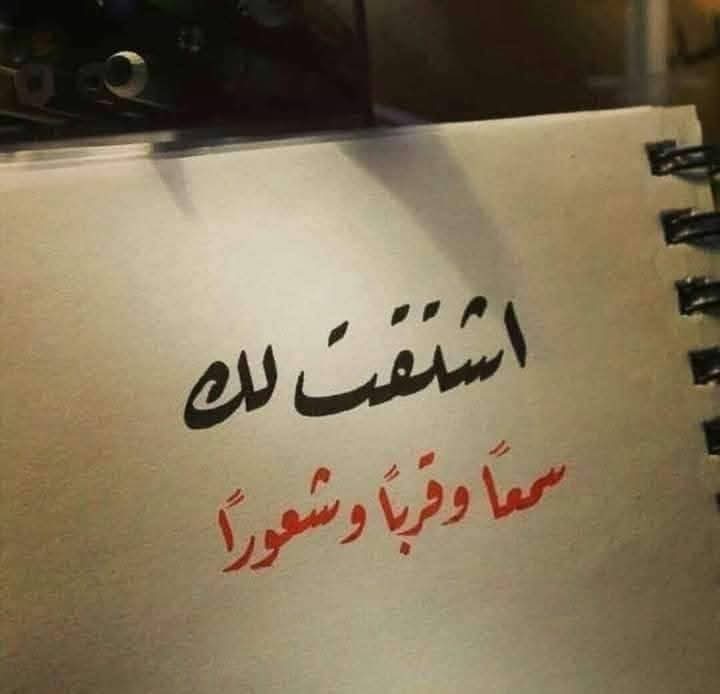 اشتقت لك
سمعاً وقرباً وشعوراً